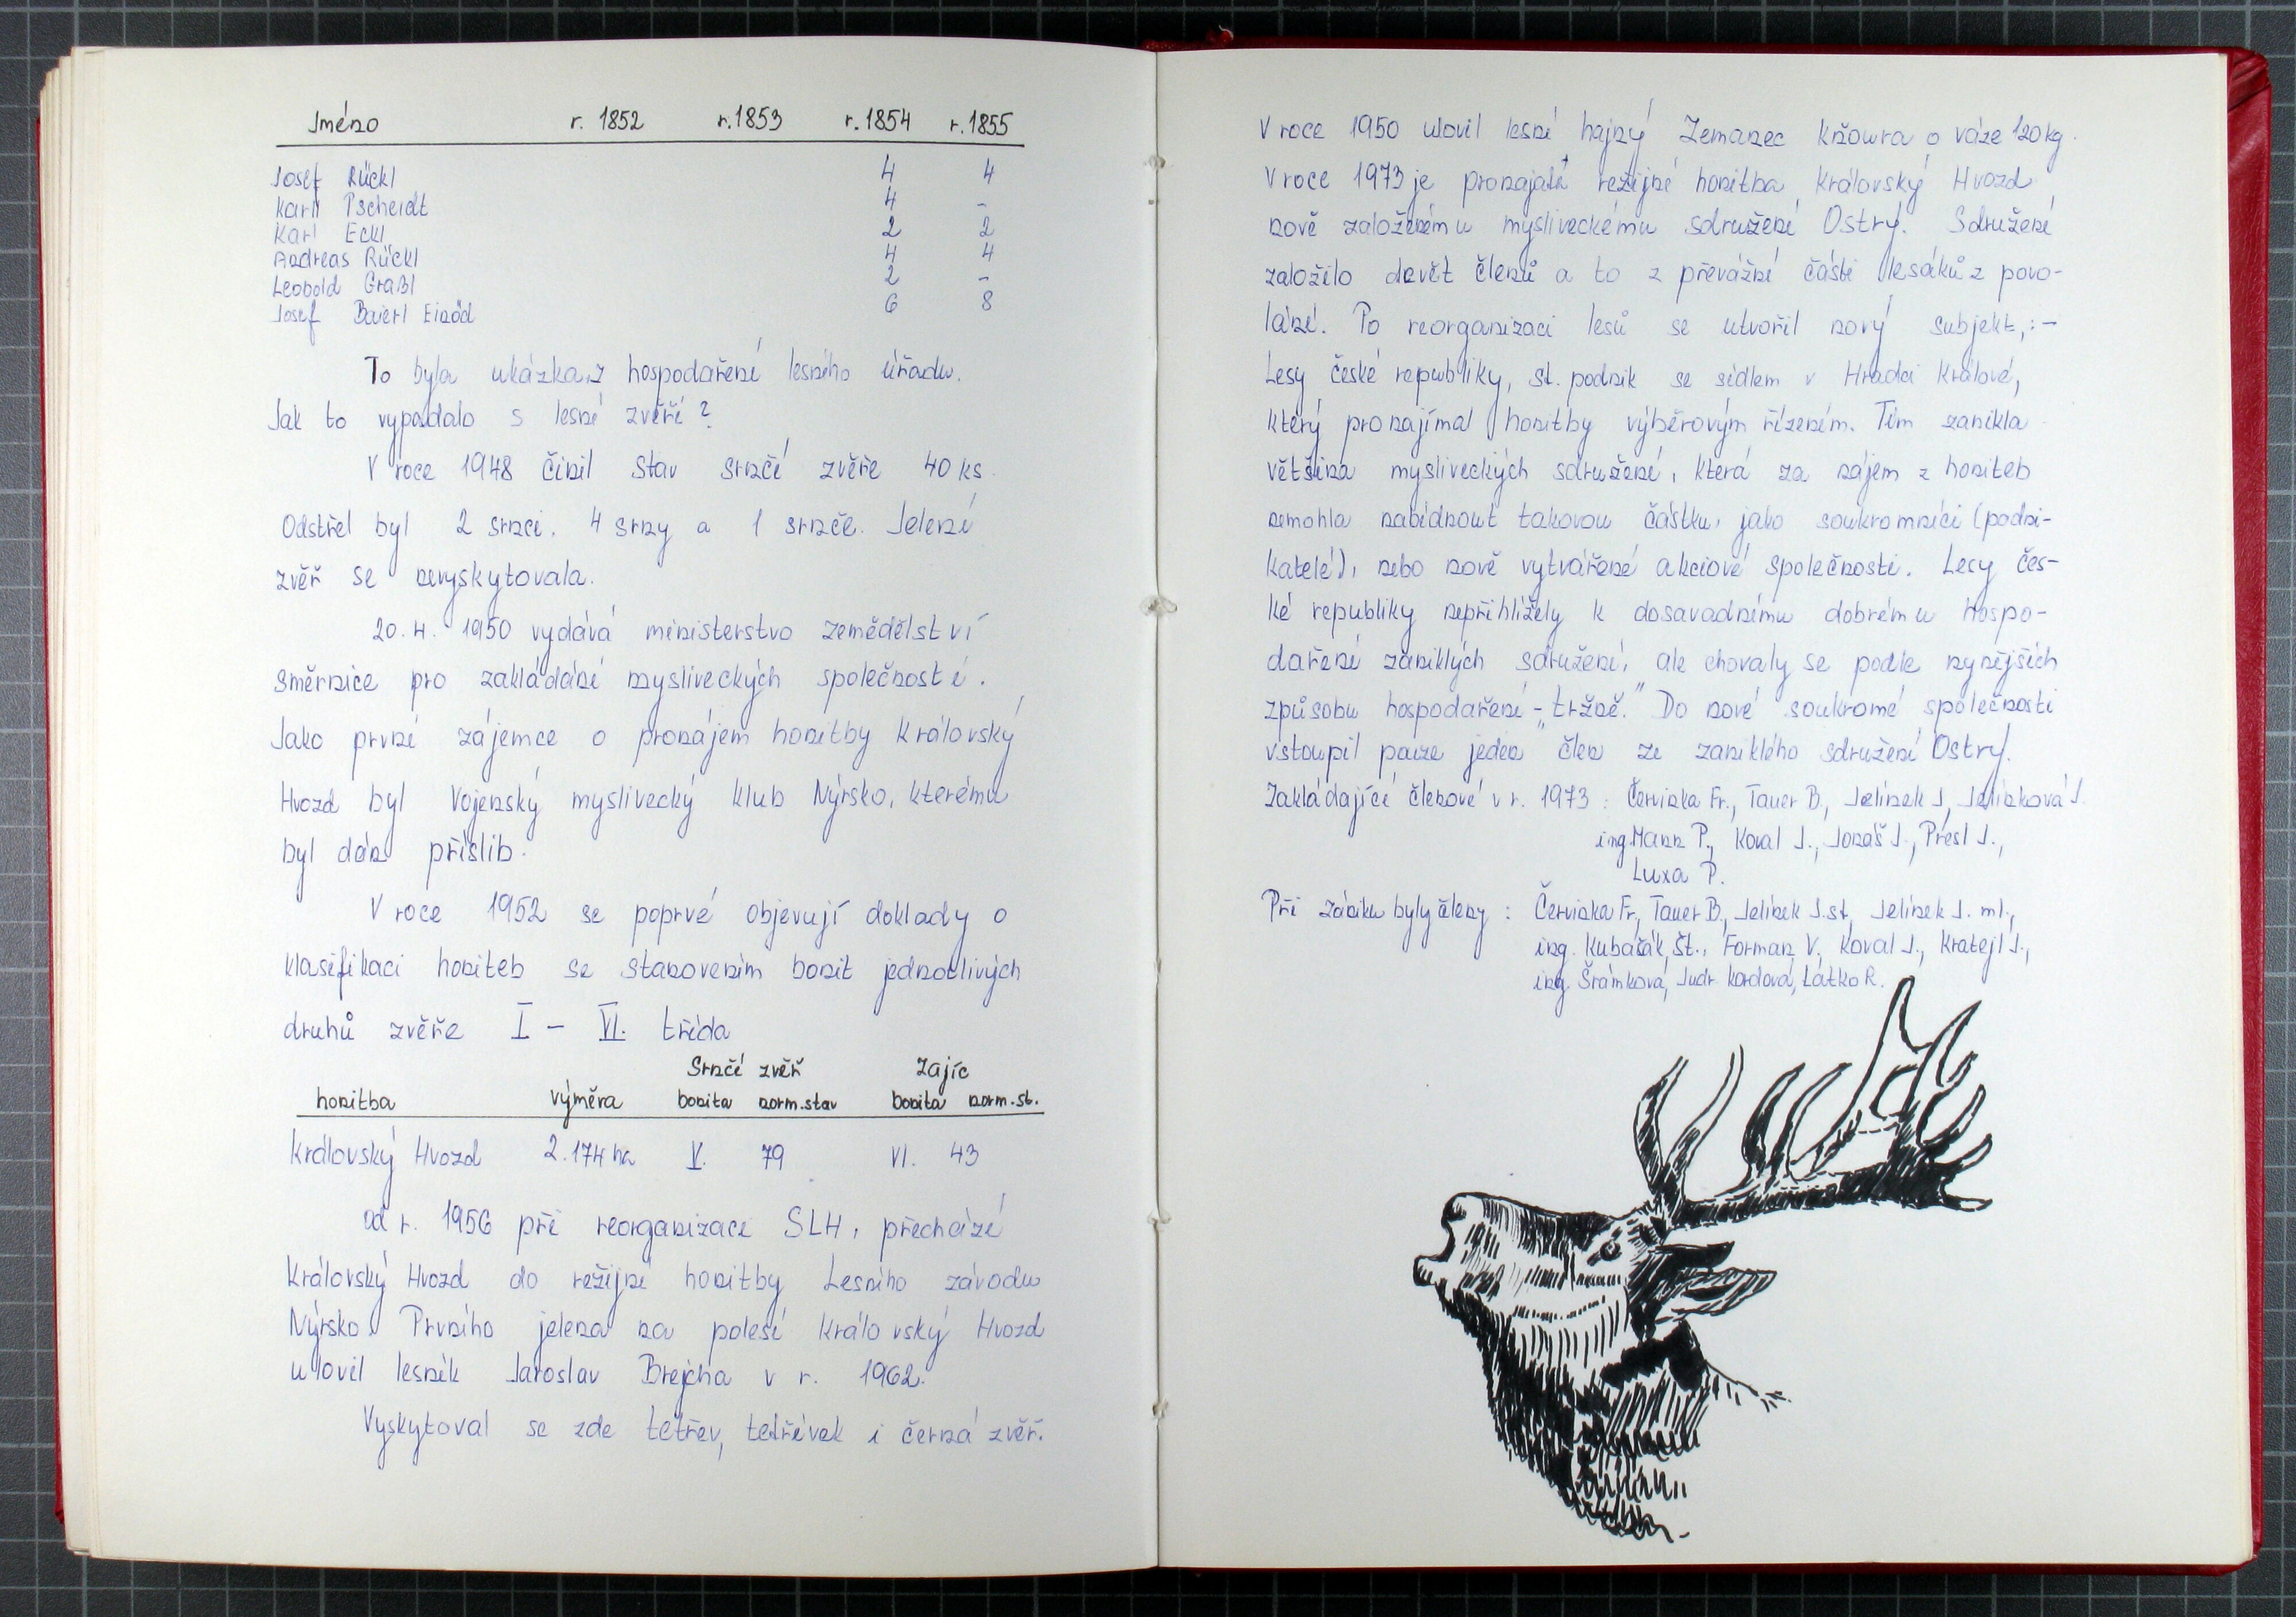 Jméno r. 1852 r. 1853 r. 1854 r. 1855
Josef Rückl 4 4
Karl Pscheidt 4 -
Karl Eckl 2 2
Andreas Rückl 4 4
Leobold Graßl 2 -
Josef Baierl Einöd 6 8
To byla ukázka z hospodaření lesního úřadu.
Jak to vypadalo s lesní zvěří?
V roce 1948 činil stav srnčí zvěře 40 ks.
Odstřel byl 2 srnci, 4 srny a 1 srnče. Jelení
zvěř se nevyskytovala.
20. 4. 1950 vydává ministerstvo zemědělství
směrnice pro zakládání mysliveckých společností.
Jako první zájemce o pronájem honitby Královský
Hvozd byl Vojenský myslivecký klub Nýrsko, kterému
byl dán příslib.
V roce 1952 se poprvé objevují doklady o
klasifikaci honiteb se stanovením bonit jednotlivých
druhů zvěře I - VI. třída
Srnčí zvěř Zajíc
honitba výměra bonita norm. stav bonita norm. st.
Královský Hvozd 2.174 ha V. 79 VI. 43
Od r. 1956 při reorganizaci SLH, přechází
Královský Hvozd do režijní honitby Lesního závodu
Nýrsko. Prvního jelena na polesí Královský Hvozd
ulovil lesník Jaroslav Brejcha v r. 1962.
Vyskytoval se zde tetřev, tetřívek i černá zvěř.
V roce 1950 ulovil lesní hajný Zemanec kňoura o váze 120 kg.
V roce 1973 je pronajata režijní honitba Královský Hvozd
nově založenému mysliveckému sdružení Ostrý. Sdružení
založilo devět členů a to z převážné části lesáků z povo-
lání. Po reorganizaci lesů se utvořil nový subjekt,:-
Lesy české republiky, st. podnik se sídlem v Hradci Králové,
který pronajímal honitby výběrovým řízením. Tím zanikla
většina mysliveckých sdružení, která za nájem z honiteb
nemohla nabídnout takovou částku, jako soukromníci (podni-
katelé), nebo nově vytvářené akciové společnosti. Lesy čes-
ké republiky nepřihlížely k dosavadnímu dobrému hospo-
daření zaniklých sdružení, ale chovaly se podle nynějších
způsobu hospodaření - „tržně." Do nové soukromé společnosti
vstoupil pouze jeden člen ze zaniklého sdružení Ostrý.
Zakládající členové v r. 1973 : Červinka Fr., Tauer B., Jelínek J, Jelínková J.
ing. Mann P., Koval J., Jonáš J., Présl J.,
Luxa P.
Při zániku byly členy : Červinka Fr., Tauer B., Jelínek J. st, Jelínek J. ml.,
ing. Kubašák Št., Forman V., Koval J., Kratejl J.,
ing. Šrámková, Judr Kordová, Látko R.